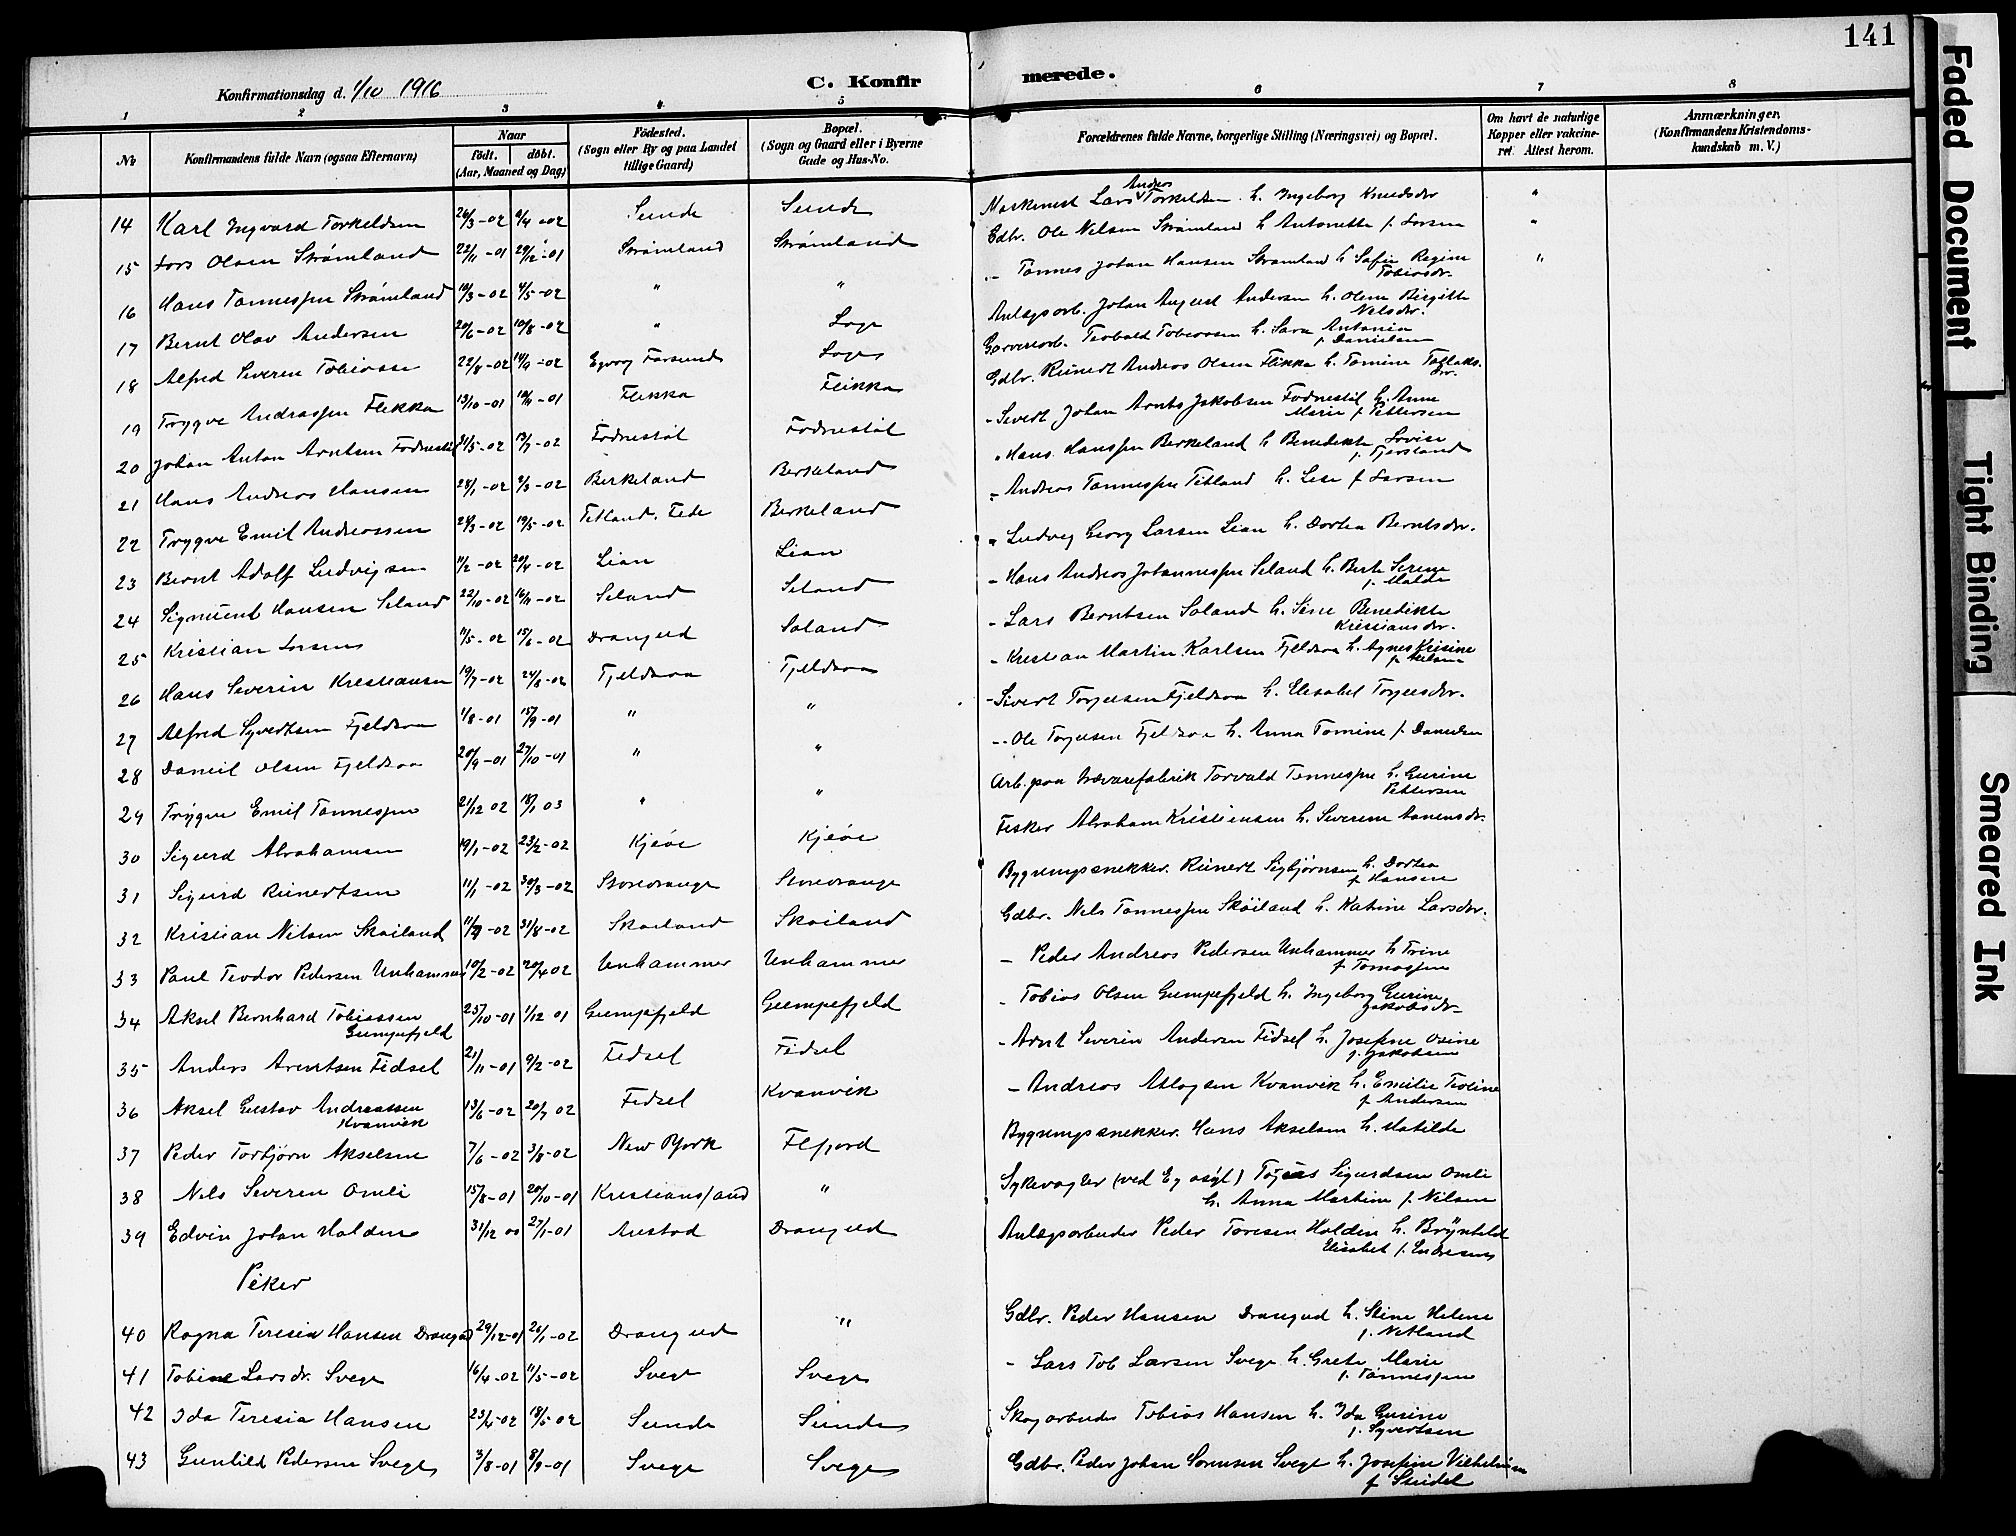 141
Konfirmationsdag d. 1/10 1916
C. Konfirmerede.
1 2 3 4 5 6 7 8
No
Konfirmandens fulde Navn (ogsaa Efternavn)
Naar födt. döbt. (Aar, Maaned og Dag)
Födested. (Sogn eller By og paa Landet tillige Gaard)
Bopæl. (Sogn og Gaard eller i Byerne Gade og Hus-No.
Forældrenes fulde Navne, borgerlige Stilling (Næringsvei) og Bopæl.
Om havt de naturlige Kopper eller vakcineret. Attest herom.
Anmærkninger. (Konfirmandens Kristendomskundskab m. V.)
14 Karl Ingvard Torkeldsen 26/3-02 6/4-02 Sunde Sunde Lars Andreas Torkeldsen h. Ingeborg Knudsdr "
15 Lars Olsen Strömland 22/11-01 29/12-01 Strömland Strömland Gdbr. Ole Nilsen Strömland h. Antonette f. Larsen "
16 Hans Tønnessen Strømland 10/3-02 4/5-02 " " - Tønnes Johan Hansen Strømland h. Sofie Regine Tobiasdr. "
17 Bernt Olav Andersen 20/6-02 10/8-02 " Loge Anlægsarb. Johan August Andersen h. Olene Birgitte Nilsdr.
18 Alfred Severin Tobiassen 22/8-02 14/9-02 Farsund Loge Garveriarb. Teobald Tobiassen h. Sara Antonia f. Danielsen
19 Trygve Andreassen Flikka 13/10-01 10/11-01 Flikka Flikka Gdbr. Reinert Andreas Olsen Flikka h. Tomine Tollaksdr.
20 Johan Anton Arntsen Fodnestöl 31/5-02 13/7-02 Fodnestöl Fodnestöl - Sivert Johan Arnts Jakobsen Fodnestöl h. Anne Marie f. Pettersen
21 Hans Andreas Hansen 28/1-02 2/3-02 Birkeland Berkeland " Hans Hanssen Berkeland h. Benedikte Lovise f. Tjorsland
22 Trygve Emil Andreassen 24/3-02 19/5-02 Tetland, Feda Berkeland - Andreas Tønnessen Tetland h. Lise f. Larsen
23 Bernt Adolf Ludvigsen 11/2-02 20/4-02 Lian Lian " Ludvig Georg Larsen Lian h. Dortea Berntsdr.
24 Sigmund Hansen Seland 22/10-02 16/11-02 Seland Seland - Hans Andreas Johannessen Seland h. Berte Serine f. Molde
25 Kristian Larsen 11/5-02 15/6-02 Drangeid Soland - Lars Berntsen Soland h. Sine Benedikte Kristiansdr.
26 Hans Severin Kristiansen 19/7-02 24/8-02 Fjeldsaa Fjeldsaa - Kristian Martin Karlsen Fjeldsaa h. Agnes Krisine f. Nilsen
27 Alfred Syvertsen Fjeldsaa 1/8-01 15/9-01 " " - Sivert Torjusen Fjeldsaa h. Elisabet Torjusdr.
28 Daniel Olsen Fjeldsaa 20/9-01 27/10-01 " " - Ole Torjusen Fjeldsaa h. Anna Tomine f. Danielsen
29 Trygve Emil Tønnessen 21/12 02 18/1 03 " " Arb. paa Trævarefabrik Torvald Tønnessen h. Gurine Pettersen
30 Sigurd Abrahamsen 19/1-02 23/2-02 Kjeöe Kjeöe Fisker Abraham Kristiensen h. Severine Aanensdr.
31 Sigurd Reinertsen 11/1-02 30/3-02 Storedrange Storedrange Bygningssnekker. Reinert Sigbjørnsen h. Dortea f. Hansen
32 Kristian Nilsen Skøiland 11/7-02 31/8-02 Skøiland Skøiland Gdbr. Nils Tønnessen Skøiland h. Katrine Larsdr.
33 Paul Teodor Pedersen Unhammer 10/2-02 20/4 02 Unhammer Unhammer - Peder Andreas Pedersen Unhammer h. Trine f. Tomassen
34 Aksel Bernhard Tobiassen Gumpefjeld 25/10-01 1/12 01 Gumpefjeld Gumpefjeld - Tobias Olsen Gumpefjeld h. Ingeborg Gurine Jakobsdr
35 Anders Arentsen Fidsel 21/11-01 9/2-02 Fidsel Fidsel - Arnt Severin Andersen Fidsel h. Josefine Osine f. Jakobsen
36 Aksel Gustav Andreassen Kvanvik 13/6-02 20/7 02 Fidsel Kvanvik - Andreas Atlogsen Kvanvik h. Emilie Teoline f. Andersen
37 Peder Torbjørn Akselsen 7/6-02 3/8-02 New York Flefjord Bygningssnekker. Hans Akselsen h. Matilde
38 Nils Severin Omli 15/8-01 20/10-01 Kristiansand " Sykevogter (ved Eg asyl) Tojus Sigurdsen Omli h. Anna Martine f. Nilsen
39 Edvin Johan Halden 31/12 00 27/1-01 Austad Drangeid Anlægsarbeider Peder Toresen Halden h. Brynhild Elisabet f. Endresen
Piker
40 Ragna Teresia Hansen Drangeid 29/12-01 26/1-02 Drangeid " Gdbr. Peder Hansen Drangeid h. Stine Helene f. Netland
41 Tobine Larsdr. Svege 16/4-02 11/5-02 Svege Svege - Lars Tob Larsen Svege h. Grete Marie f. Tønnessen
42 Ida Teresia Hansen 23/4-02 18/5-02 Sunde Sunde Skogarbeider Tobias Hansen h. Ida Gurine f. Syvertsen
43 Gunhild Pedersen Svege 3/8-01 8/9-01 Svege Svege Gdbr. Peder Johan Sørensen Svege h. Josefine Vilhelmine f. Seidel
Faded Document
Tight Binding
Smeared Ink